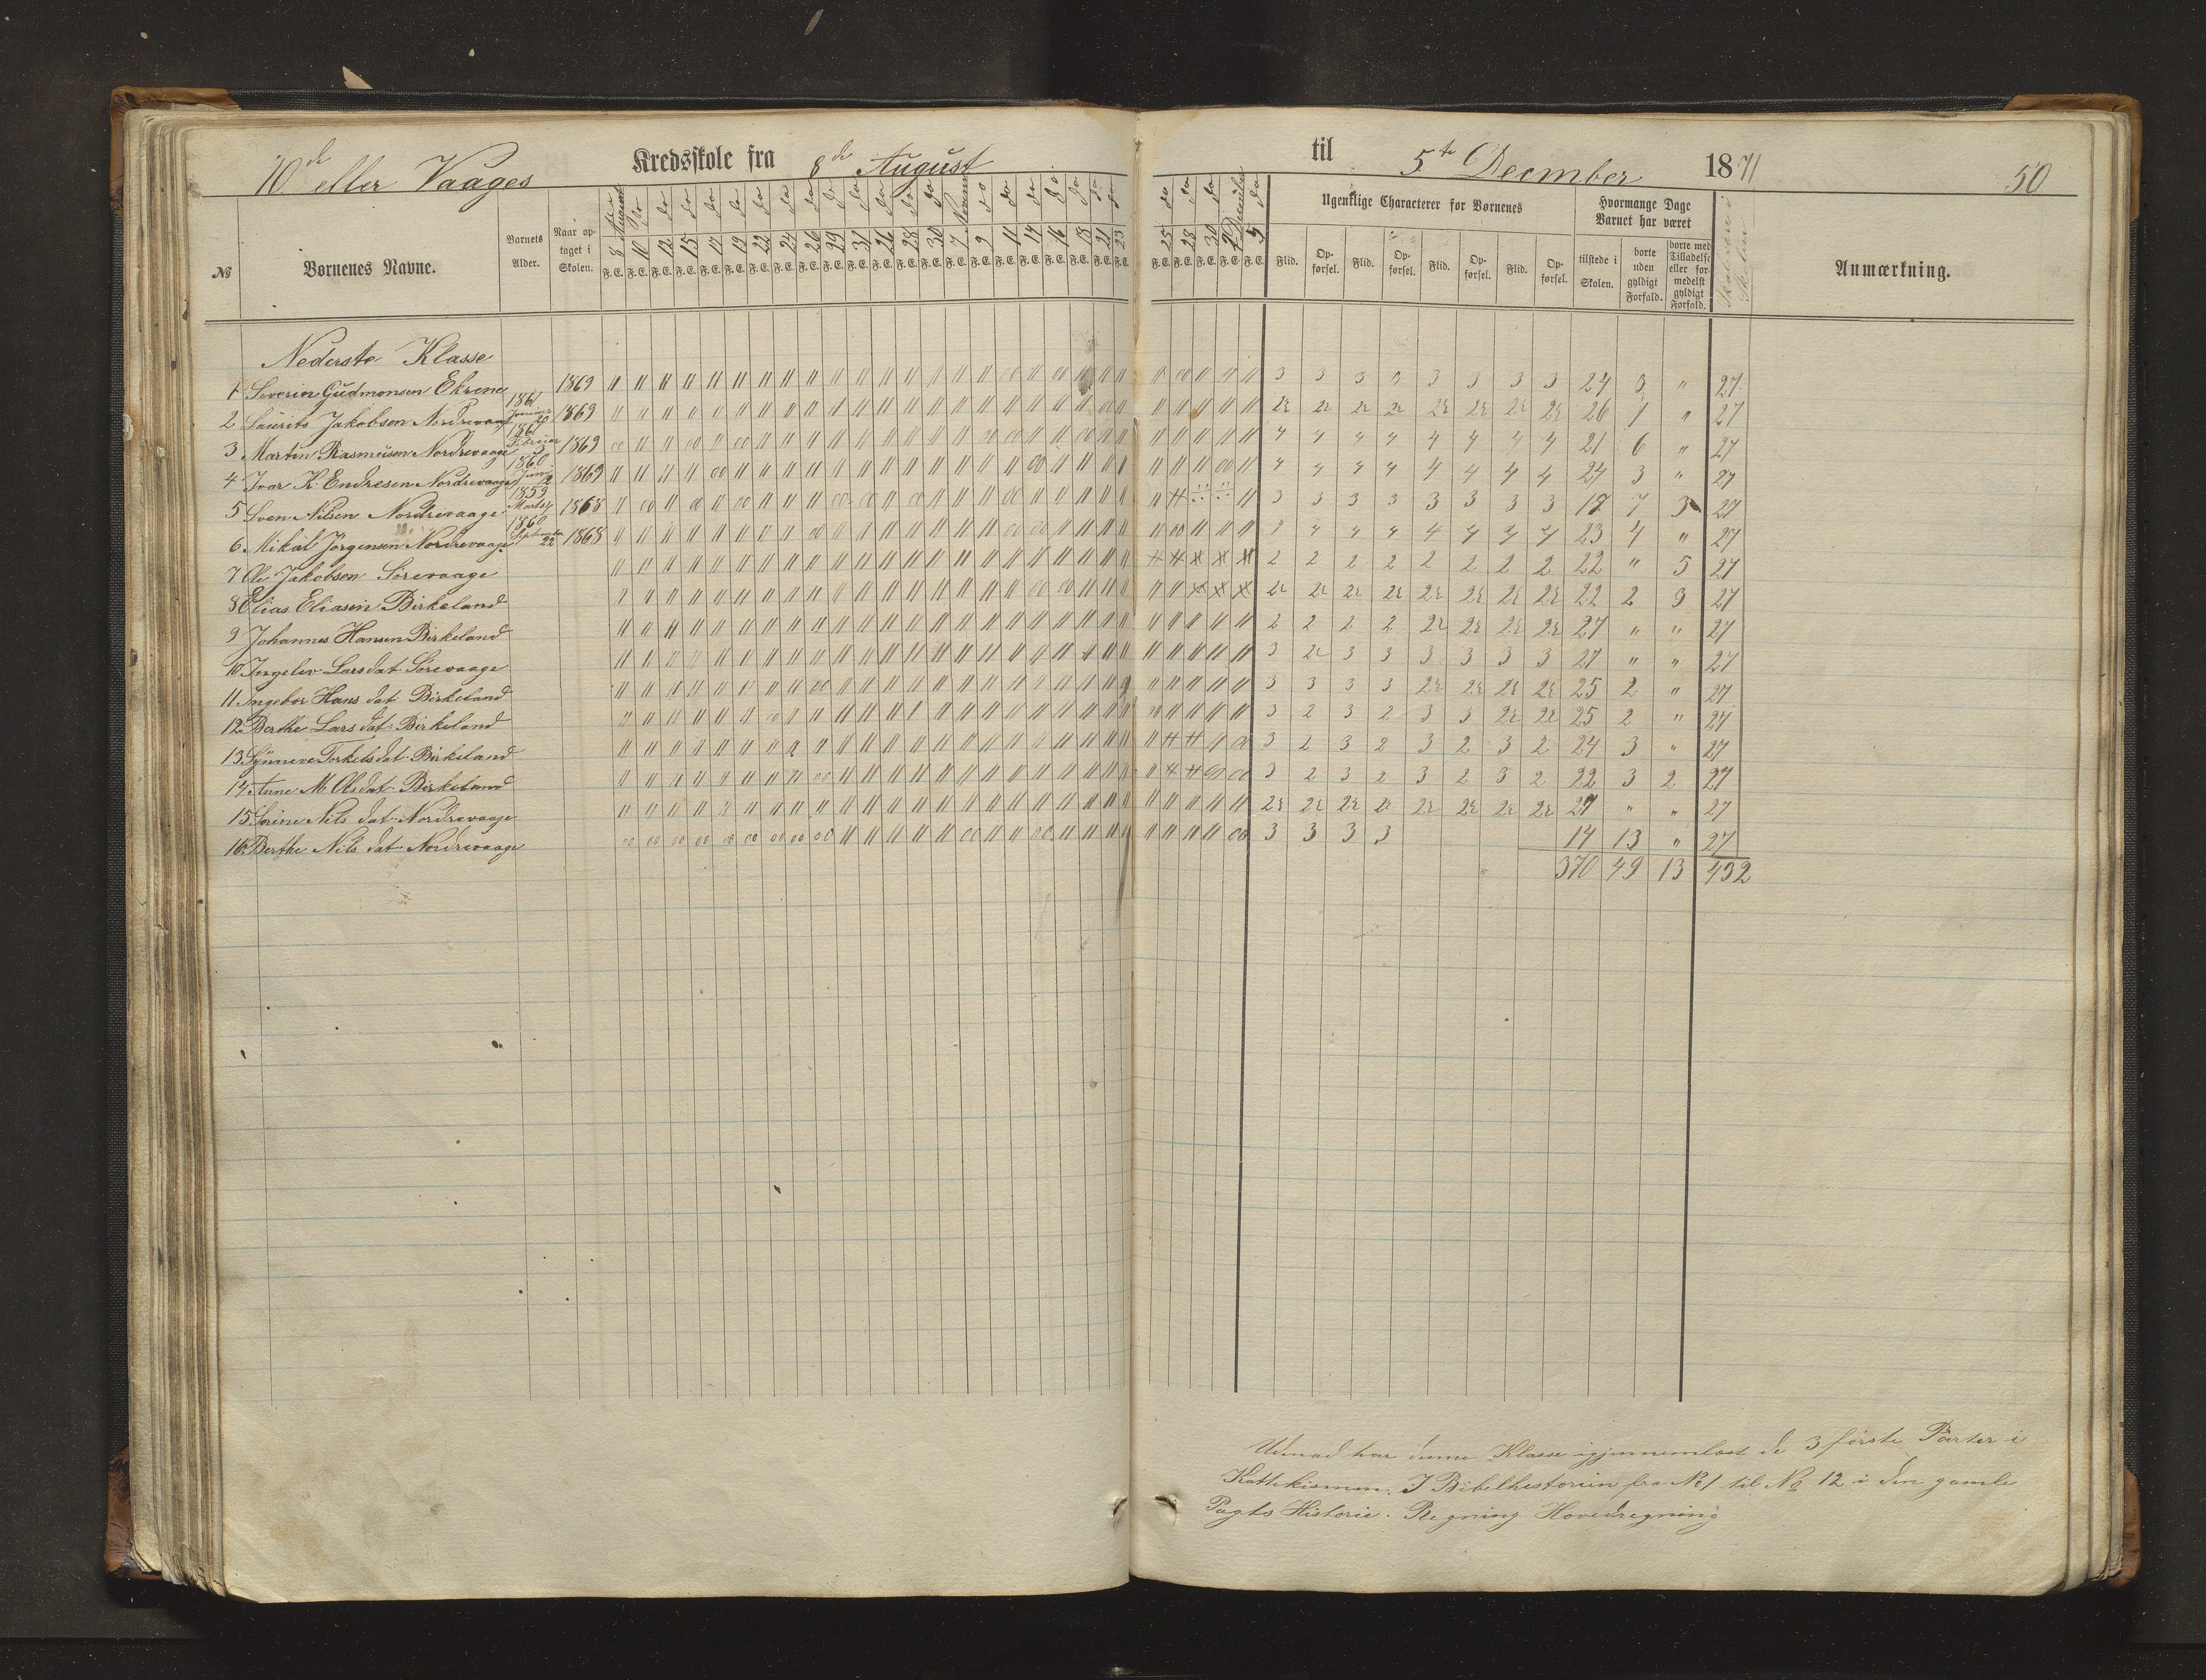 10de eller Vaages Kredsskole fra 8de August til 5te December 1871 50
№ Børnenes Navne. Barnets Alder. Naar optaget i Skolen. Ugentlige Characterer for Børnenes Hvormange Dage Barnet har været Anmærkning.
8 10 12 15 17 19 22 24 26 29 31 26 28 30 7 9 11 14 16 18 21 23 25 28 30 2 5
Flid. Opførsel. Flid. Opførsel. Flid. Opførsel. Flid. Opførsel. tilstede i Skolen. borte uden gyldigt Forfald. borte med Tilladelse eller formedelst gyldigt Forfald.
Nederste Klasse
1 Severin Gudmonsen Ekrene 1869 3 3 3 3 3 3 3 3 24 3 " 27
2 Laurits Jakobsen Nordrevaage 1861 Januar 29 1869 26 1 " 27
3 Martin Rasmusen Nordrevaage 1861 Februar 3 1869 4 4 4 4 4 4 4 4 21 6 " 27
4 Ivar K. Endresen Nordrevaage 1860 Juni 12 1869 4 4 4 4 4 4 4 4 24 3 " 27
5 Sven Nilsen Nordrevaage 1859 Marts 1868 3 3 3 3 3 3 3 3 17 7 3 27
6 Mikal Jørgensen Nordrevaage 1860 September 22 1868 4 4 4 4 4 4 4 4 23 4 " 27
7 Ole Jakobsen Sørevaage 2 2 2 2 2 2 2 2 22 " 5 27
8 Elias Eliasen Birkeland 22 2 3 27
9 Johannes Hansen Birkeland 2 2 2 2 27 " " 27
10 Ingelev Larsdat. Sørevaage 3 3 3 3 3 3 3 27 " " 27
11 Ingebor Hans dat Birkeland 3 3 3 3 25 2 " 27
12 Berthe Lars dat. Birkeland 3 2 3 2 3 3 25 2 " 27
13 Synneve Torkelsdat. Birkeland 3 2 3 2 3 2 3 2 24 3 " 27
14 Anne M Olsdat. Birkeland 3 2 3 2 3 2 3 2 22 3 2 27
15 Serine Nils dat. Nordrevaage 27 " " 27
16 Berthe Nils dat Nordrevaage 3 3 3 3 14 13 " 27
370 49 13 432
har denne Klasse igjennemlæst de 3 første Parter i
Kattekismen. I Bibelhistorien fra No 1 til No 12 i den gamle
Pagts Historie. Regning Hovedregning